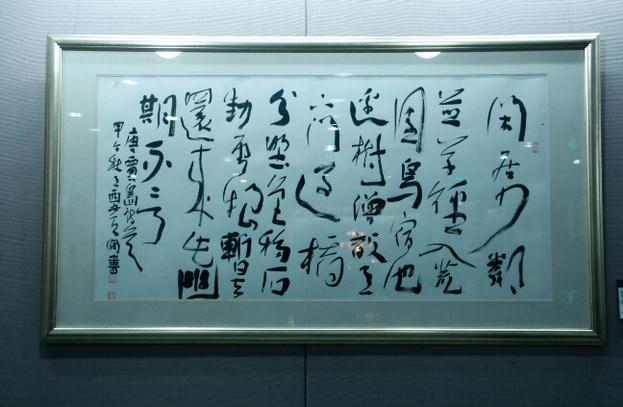 閑居少鄰
並草徑入荒
園鳥宿池
邊樹僧敲月
下門過橋
分野色移石
動雲根暫去
還来此幽
期不負言
唐賈島詩一首
甲午秋月書